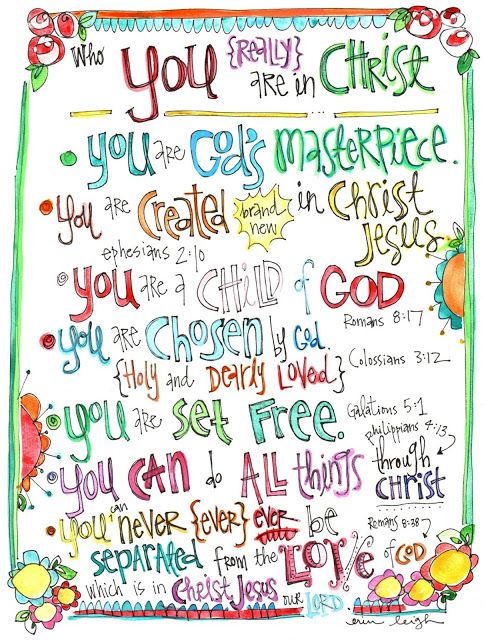 Who YOU {REALLY} ARE in CHRIST
YOU ARE GOD'S MASTERPIECE.
YOU are Created brand new in Christ Jesus
ephesians 2:10
YOU ARE A CHILD of GOD
Romans 8:17
YOU ARE CHOSEN by GOD.
Colossians 3:12
{Holy and Dearly Loved}
YOU are set FREE.
Galations 5:1
philippians 4:13
YOU CAN do ALL things through CHRIST
YOU can never {ever} ever be
Romans 8:38
SEPARATED from the LOVE of GOD
which is in Christ Jesus our LORD
erin leigh